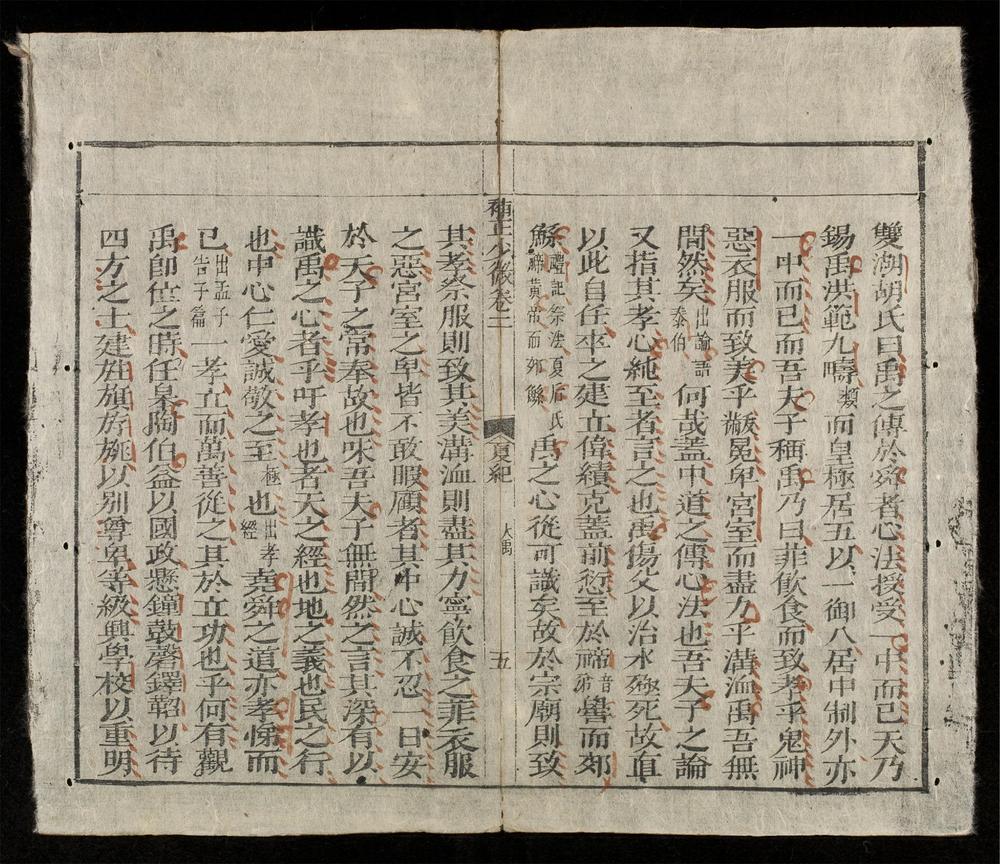 雙湖胡氏曰禹之傳於舜者心法授受一中而已天乃
錫禹洪範九疇類而皇極居五以一御八居中制外亦
一中而已而吾夫子稱禹乃曰菲飲食而致孝乎鬼神
惡衣服而致美乎黻冕卑宮室而盡力乎溝洫禹吾無
間然矣出論語泰伯何哉蓋中道之傳心法也吾夫子之論
又指其孝心純至者言之也禹傷父以治水殛死故直
以此自任卒之建立偉績克蓋前愆至於禘音第嚳而郊
鯀禮記祭法夏后氏禘黃帝而郊鯀禹之心從可識矣故於宗廟則致
補正少微卷二
夏紀
大禹
五
其孝祭服則致其美溝洫則盡其力寧飲食之菲衣服
之惡宮室之卑皆不敢暇顧者其中心誠不忍一日安
於天子之常奉故也味吾夫子無間然之言其深有以
識禹之心者乎吁孝也者天之經也地之義也民之行
也中心仁愛誠敬之至極也出孝經堯舜之道亦孝悌而
已出孟子告子篇一孝立而萬善從之其於立功也乎何有觀
禹卽位之時任皐陶伯益以國政懸鐘鼓磬鐸鞀以待
四方之士建旌旗旂旐以別尊卑等級興學校以重明